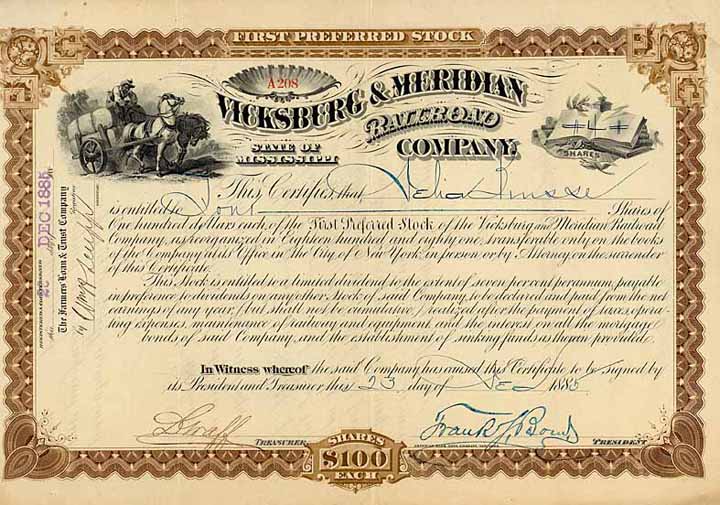 FIRST PREFERRED STOCK
A208
VICKSBURG & MERIDIAN
RAILROAD
STATE OF
MISSISSIPPI
COMPANY.
4
SHARES
This Certifies that
is entitled to Four Shares of
One hundred dollars each of the First Preferred Stock of the Vicksburg and Meridian Railroad
Company, as reorganized in Eighteen hundred and eighty one, transferable only on the books
of the Company at its Office in the City of New York, in person or by Attorney, on the surrender
of this Certificate.
This Stock is entitled to a limited dividend to the extent of seven per cent per annum, payable
in preference to dividends on any other Stock of said Company, to be declared and paid from the net
earnings of any year, (but shall not be cumulative) realized after the payment of taxes, oper-
ating expenses, maintenance of railway and equipment and the interest on all the mortgage
bonds of said Company, and the establishment of sinking funds as therein provided.
In Witness whereof the said Company has caused this Certificate to be signed by
its President and Treasurer this 23 day of Dec 1885
TREASURER.
Frank S. Bond
PRESIDENT
SHARES
$100
EACH
DEC 1885
The Farmers Loan & Trust Company
by